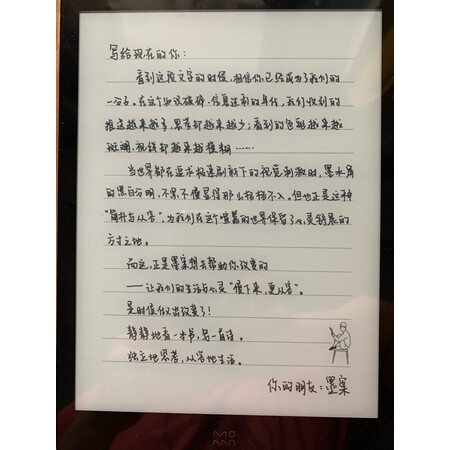 写给现在的你：
看到这段文字的时候，相信你已经成为了我们的
一分子。在这个知识破碎、信息过剩的时代，我们收到的
推送越来越多，思考却越来越少；看到的色彩越来越
斑斓，视线却越来越模糊……
当世界都在要求极速刷新下的视觉刺激时，墨水屏
的黑白分明，不紧不慢显得那么格格不入。但也正是这种
“简朴与从容”，为我们在这个喧嚣的世界保留了心灵舒展的
方寸之地。
而这，正是墨案想去帮助你改变的
——让我们的生活与心灵“慢下来，更从容”。
是时候做出改变了！
静静地看一本书，写一首诗。
独立地思考，从容地生活。
你的朋友：墨案